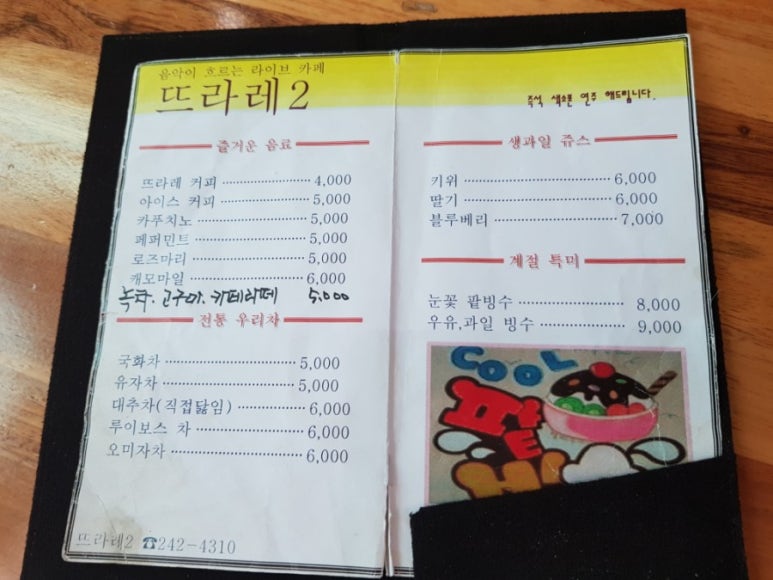 음악이 흐르는 라이브 카페
뜨라레2
즐거운 음료
뜨라레 커피 4,000
아이스 커피 5,000
카푸치노 5,000
페퍼민트 5,000
로즈마리 5,000
캐모마일 6,000
녹차. 고구마. 카페라떼 5.000
전통 우리차
국화차 5,000
유자차 5,000
대추차(직접닳임) 6,000
루이보스 차 6,000
오미자차 6,000
뜨라레2 ☎242-4310
즉석 색소폰 연주 해드립니다.
생과일 쥬스
키위 6,000
딸기 6,000
블루베리 7,000
계절 특미
눈꽃 팥빙수 8,000
우유,과일 빙수 9,000
COOL
팥